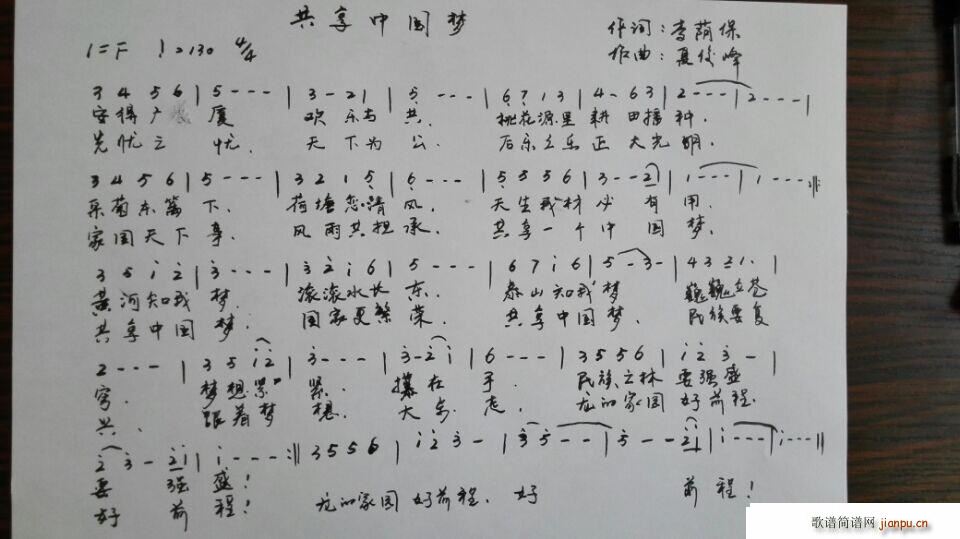 共享中国梦
作词：李荫保
1=F ♩=130 4/4
作曲：夏俊峰
3 4 5 6 | 5 - - - | 3 - 2 1 | 5 - - - | 6 7 1 3 | 4 - 6 3 | 2 - - - | 2 - - - |
安得广 厦 欢乐与共. 桃花源里耕田播种.
先忧之忧. 天下为公. 后乐之乐正大光明.
3 4 5 6 | 5 - - - | 3 2 1 5 | 6 - - - | 5 5 5 6 | 3 - - 2 | 1 - - - | 1 - - - :||
采菊东篱下. 荷塘怨清风. 天生我材必有用.
家国天下事. 风雨共担承. 共享一个中国梦.
3 5 i 2 | 3 - - - | 3 2 i 6 | 5 - - - | 6 7 i 6 | 5 - 3 - | 4 3 2 1 · |
黄河知我梦. 滚滚水长东. 泰山知我梦 巍巍立苍
共享中国梦. 国家更繁荣. 共享中国梦. 民族要复
2 - - - | 3 5 i 2 | 3 - - - | 3 - 2 i | 6 - - - | 3 5 5 6 | i 2 3 - |
穹. 梦想紧 紧. 攥在手. 民族之林要强盛
兴. 跟着梦想. 大步走. 龙的家园好前程.
2 3 - 2 i | i - - - :|| 3 5 5 6 | i 2 3 - | 3 5 - - | 5 - - 2 i | i - - - | i - - - ||
要强盛！
好前程！ 龙的家园好前程. 好 前程！
歌谱简谱网 jianpu.cn